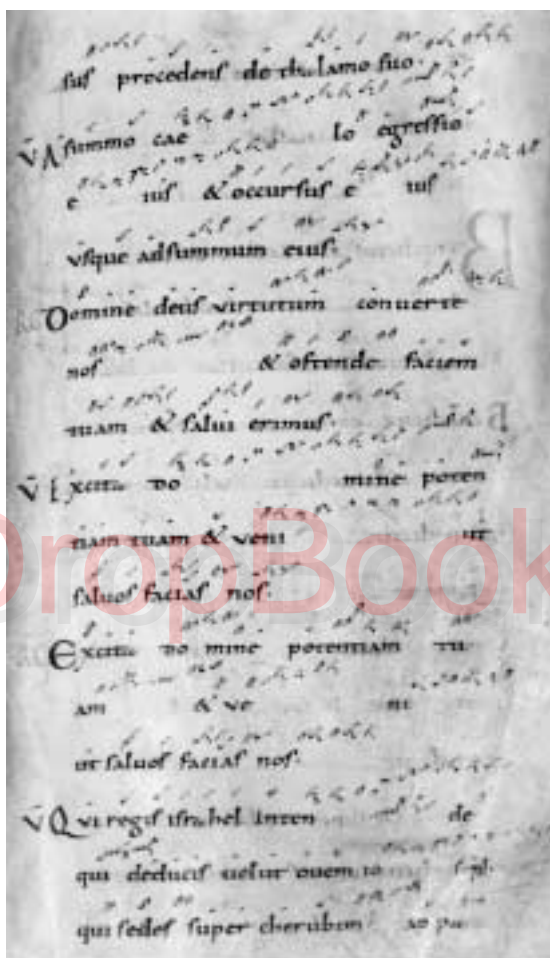 suſ procedenſ de thalamo suo.
V̄ A summo cae lo egressio
e iuſ & occursuſ e iuſ
vsque adsummum eiuſ.
Domine deuſ virtutum conuerte
noſ & oſtende faciem
tuam & salui erimuſ.
V̄ Excita do mine poten
tiam tuam & veni ut
saluoſ faciaſ noſ.
Excita do mine potentiam tu
am & ve ni
ut saluoſ faciaſ noſ.
V̄ Qui regiſ israhel inten de
qui deduciſ uelut ouem io
qui sedeſ super cherubim
DropBook